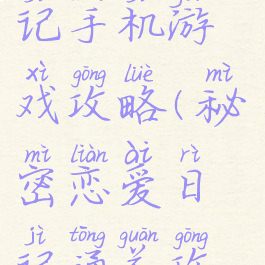 记手机游
xì gōng lüè mì
戏攻略(秘
mì liàn ài rì
密恋爱日
jì tōng guān gōng
记通关攻